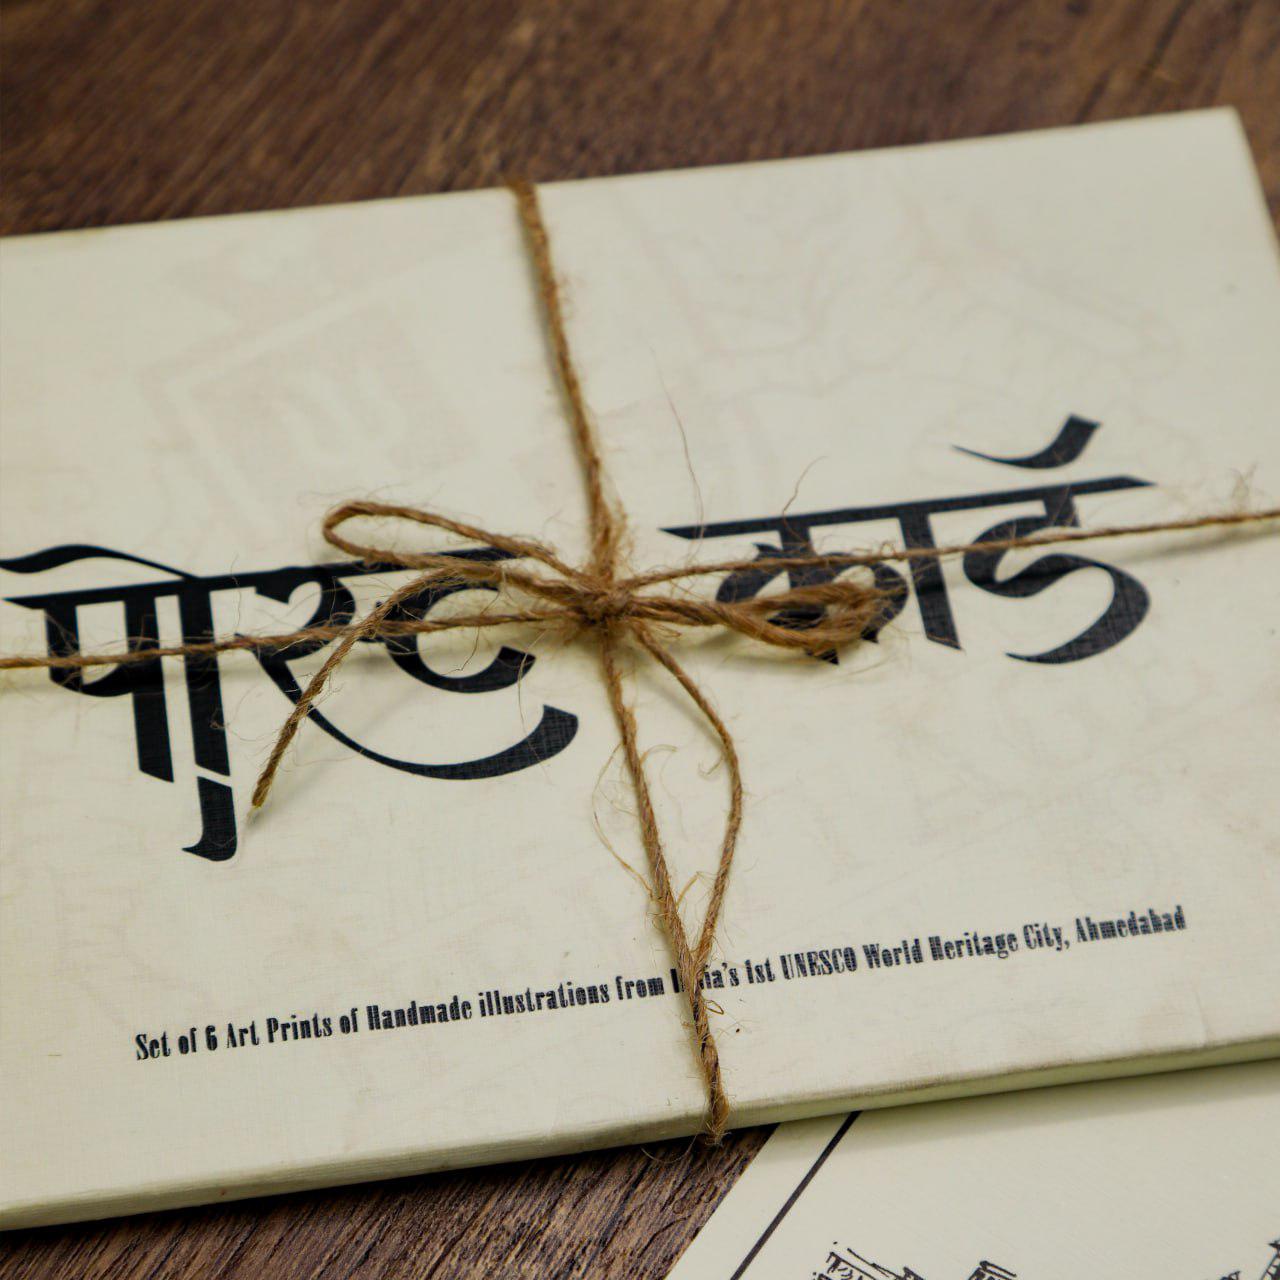 पोस्ट कार्ड
Set of 6 Art Prints of Handmade illustrations from India's 1st UNESCO World Heritage City, Ahmedabad